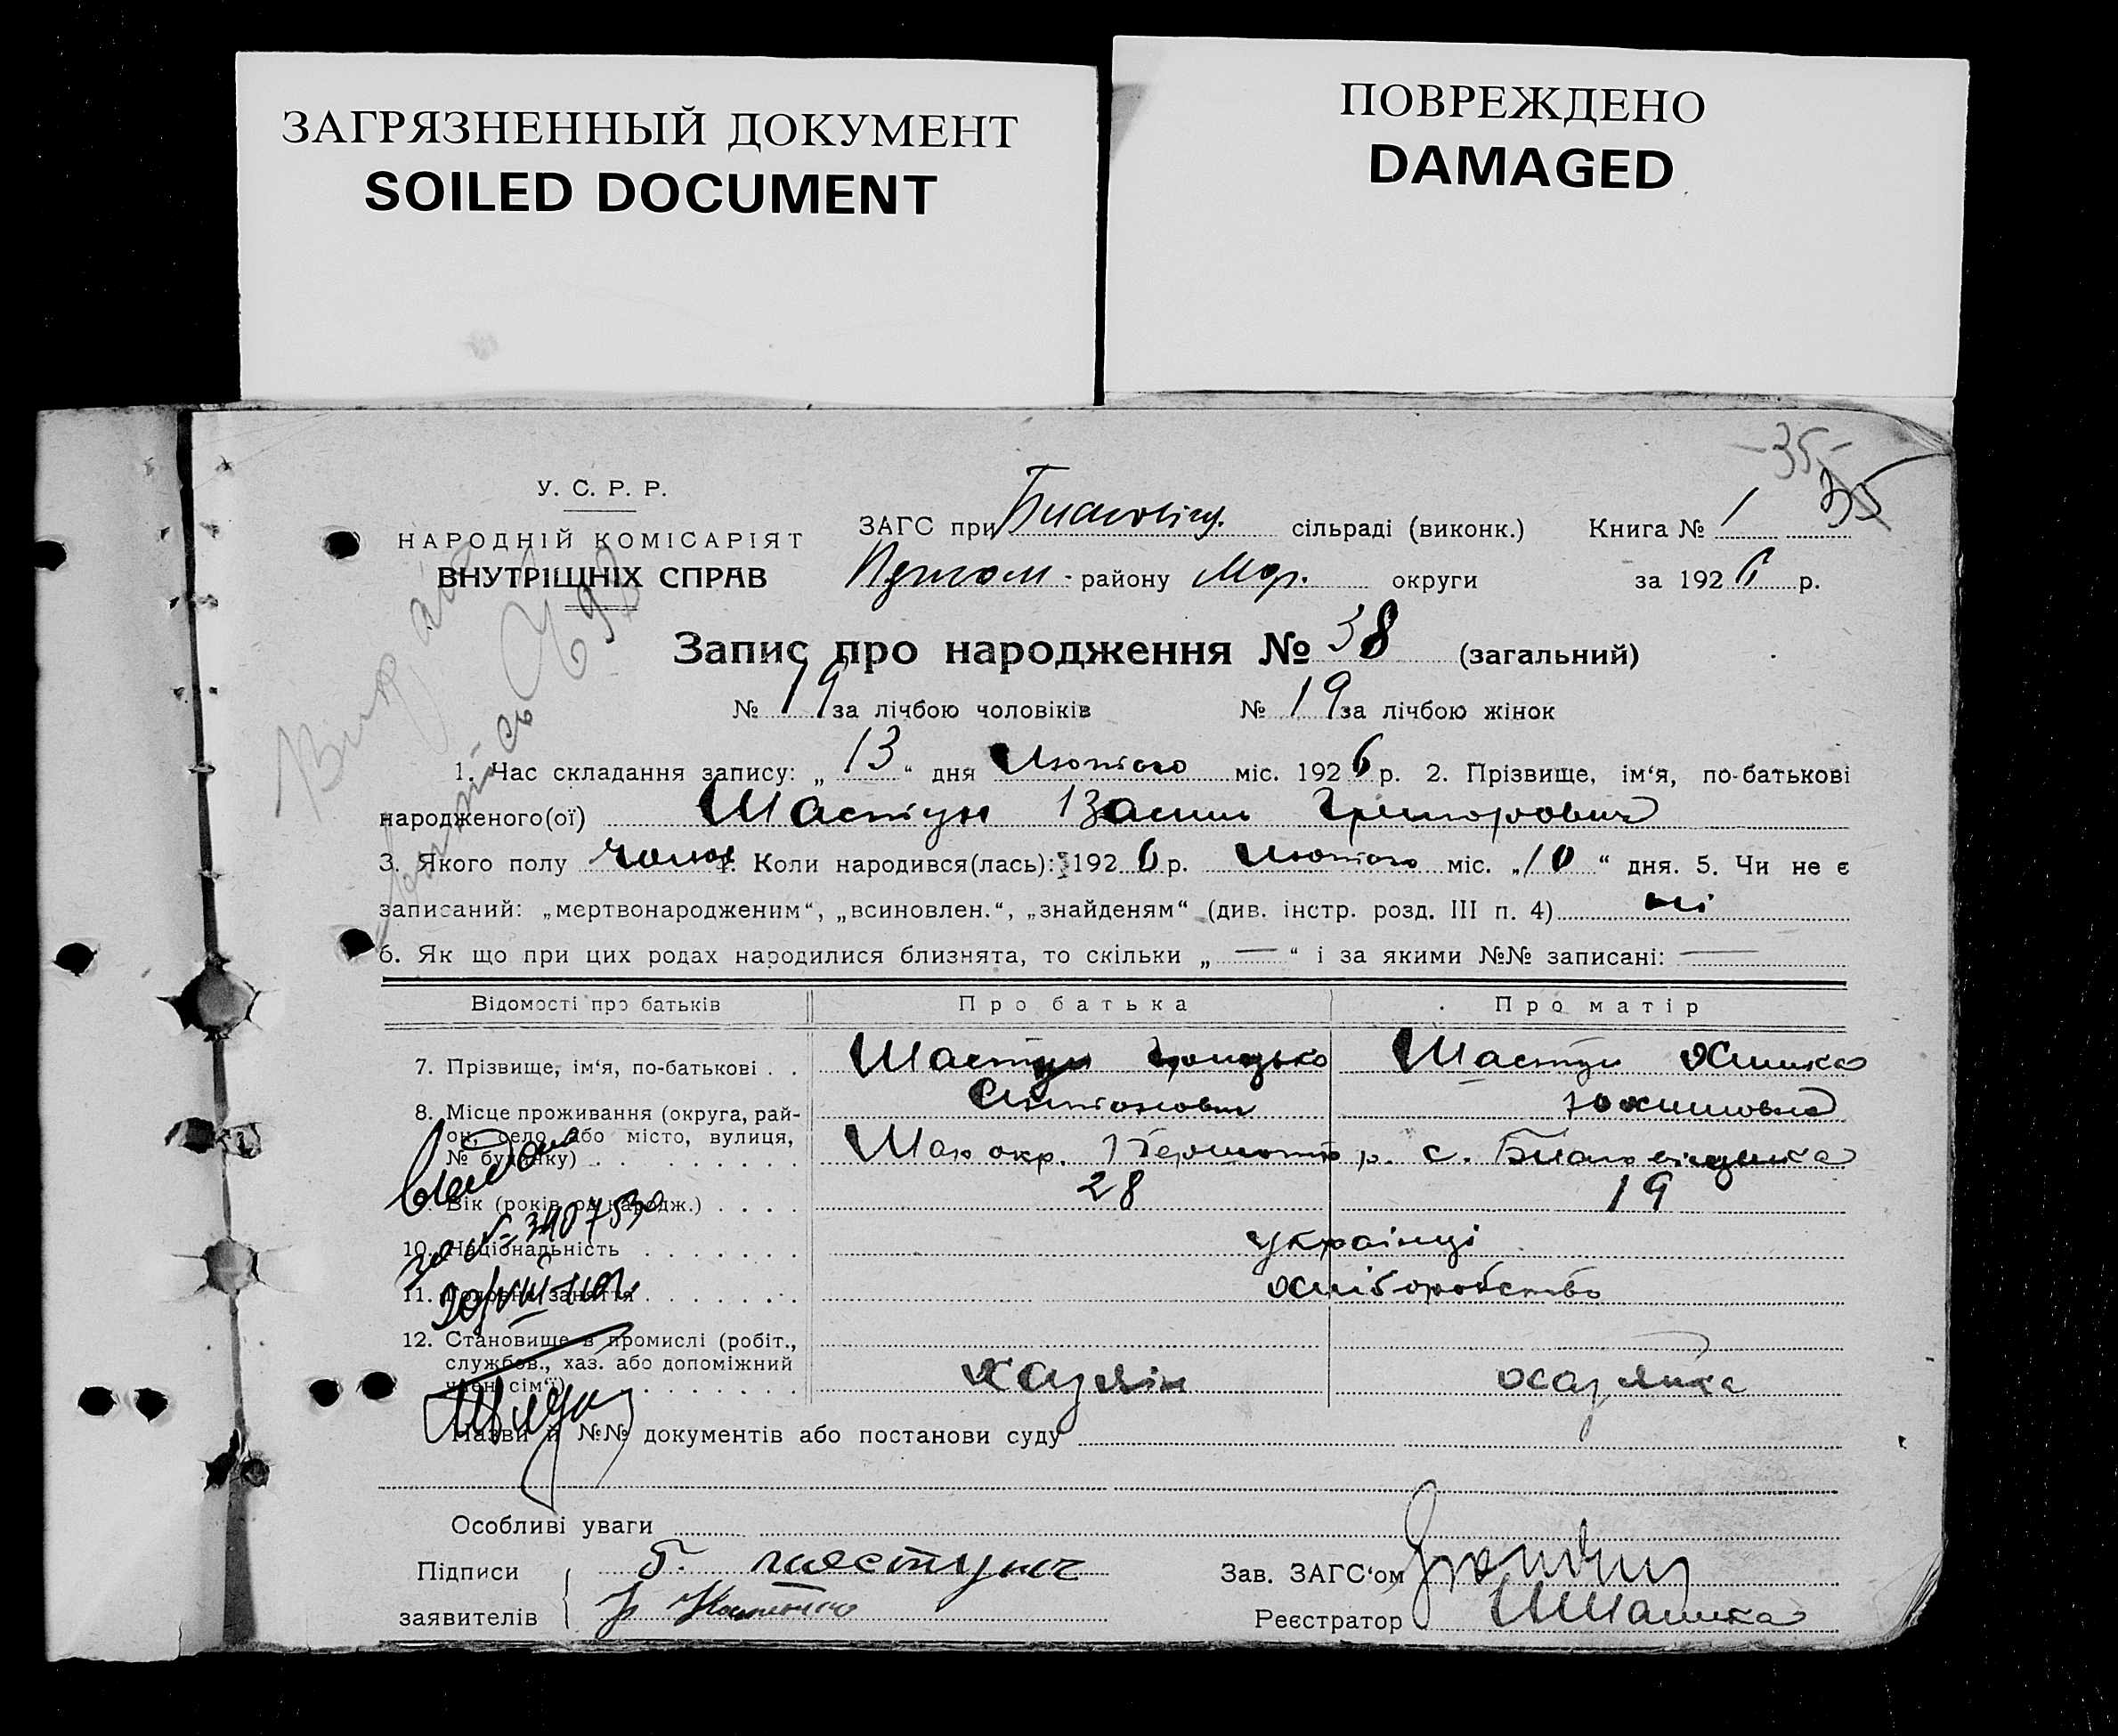 ЗАГРЯЗНЕННЫЙ ДОКУМЕНТ
SOILED DOCUMENT
ПОВРЕЖДЕНО
DAMAGED
-35-
35
У. С. Р. Р.
НАРОДНІЙ КОМІСАРІЯТ
ВНУТРІШНІХ СПРАВ
ЗАГС при сільраді (виконк.) Книга № 1
району Мар. округи за 1926 р.
Запис про народження № 38 (загальний)
№ 19 за лічбою чоловіків № 19 за лічбою жінок
1. Час складання запису: „ 13 “ дня Лютого міс. 1926 р. 2. Прізвище, ім‘я, по-батькові
народженого(ої) Шастун Василь Григорович
3. Якого полу чолов 4. Коли народився(лась): 1926 р. Лютого міс. „ 10 “ дня. 5. Чи не є
записаний: „мертвонародженим“, „всиновлен.“, „знайденям“ (див. інстр. розд. III п. 4) ні
6. Як що при цих родах народилися близнята, то скільки „ — “ і за якими №№ записані: —
Відомості про батьків Про батька Про матір
7. Прізвище, ім‘я, по-батькові . . Шастун Грицько Шастун
8. Місце проживання (округа, рай-
он, село або місто, вулиця,
№ будинку) . . . . . . . . . Мар окр. р. с.
9. Вік (років од народж.) . . . . 28 19
10. Національність . . . . . . . українці
11. Головне заняття . . . . . . . хліборобство
12. Становище в промислі (робіт.,
службов., хаз. або допоміжний
член сім‘ї) . . . . . . . . хазяїн хазяйка
Видано
за № 3407530
Назви й №№ документів або постанови суду
Особливі уваги
Підписи Б. шастунъ
заявителів
Зав. ЗАГС‘ом
Реєстратор